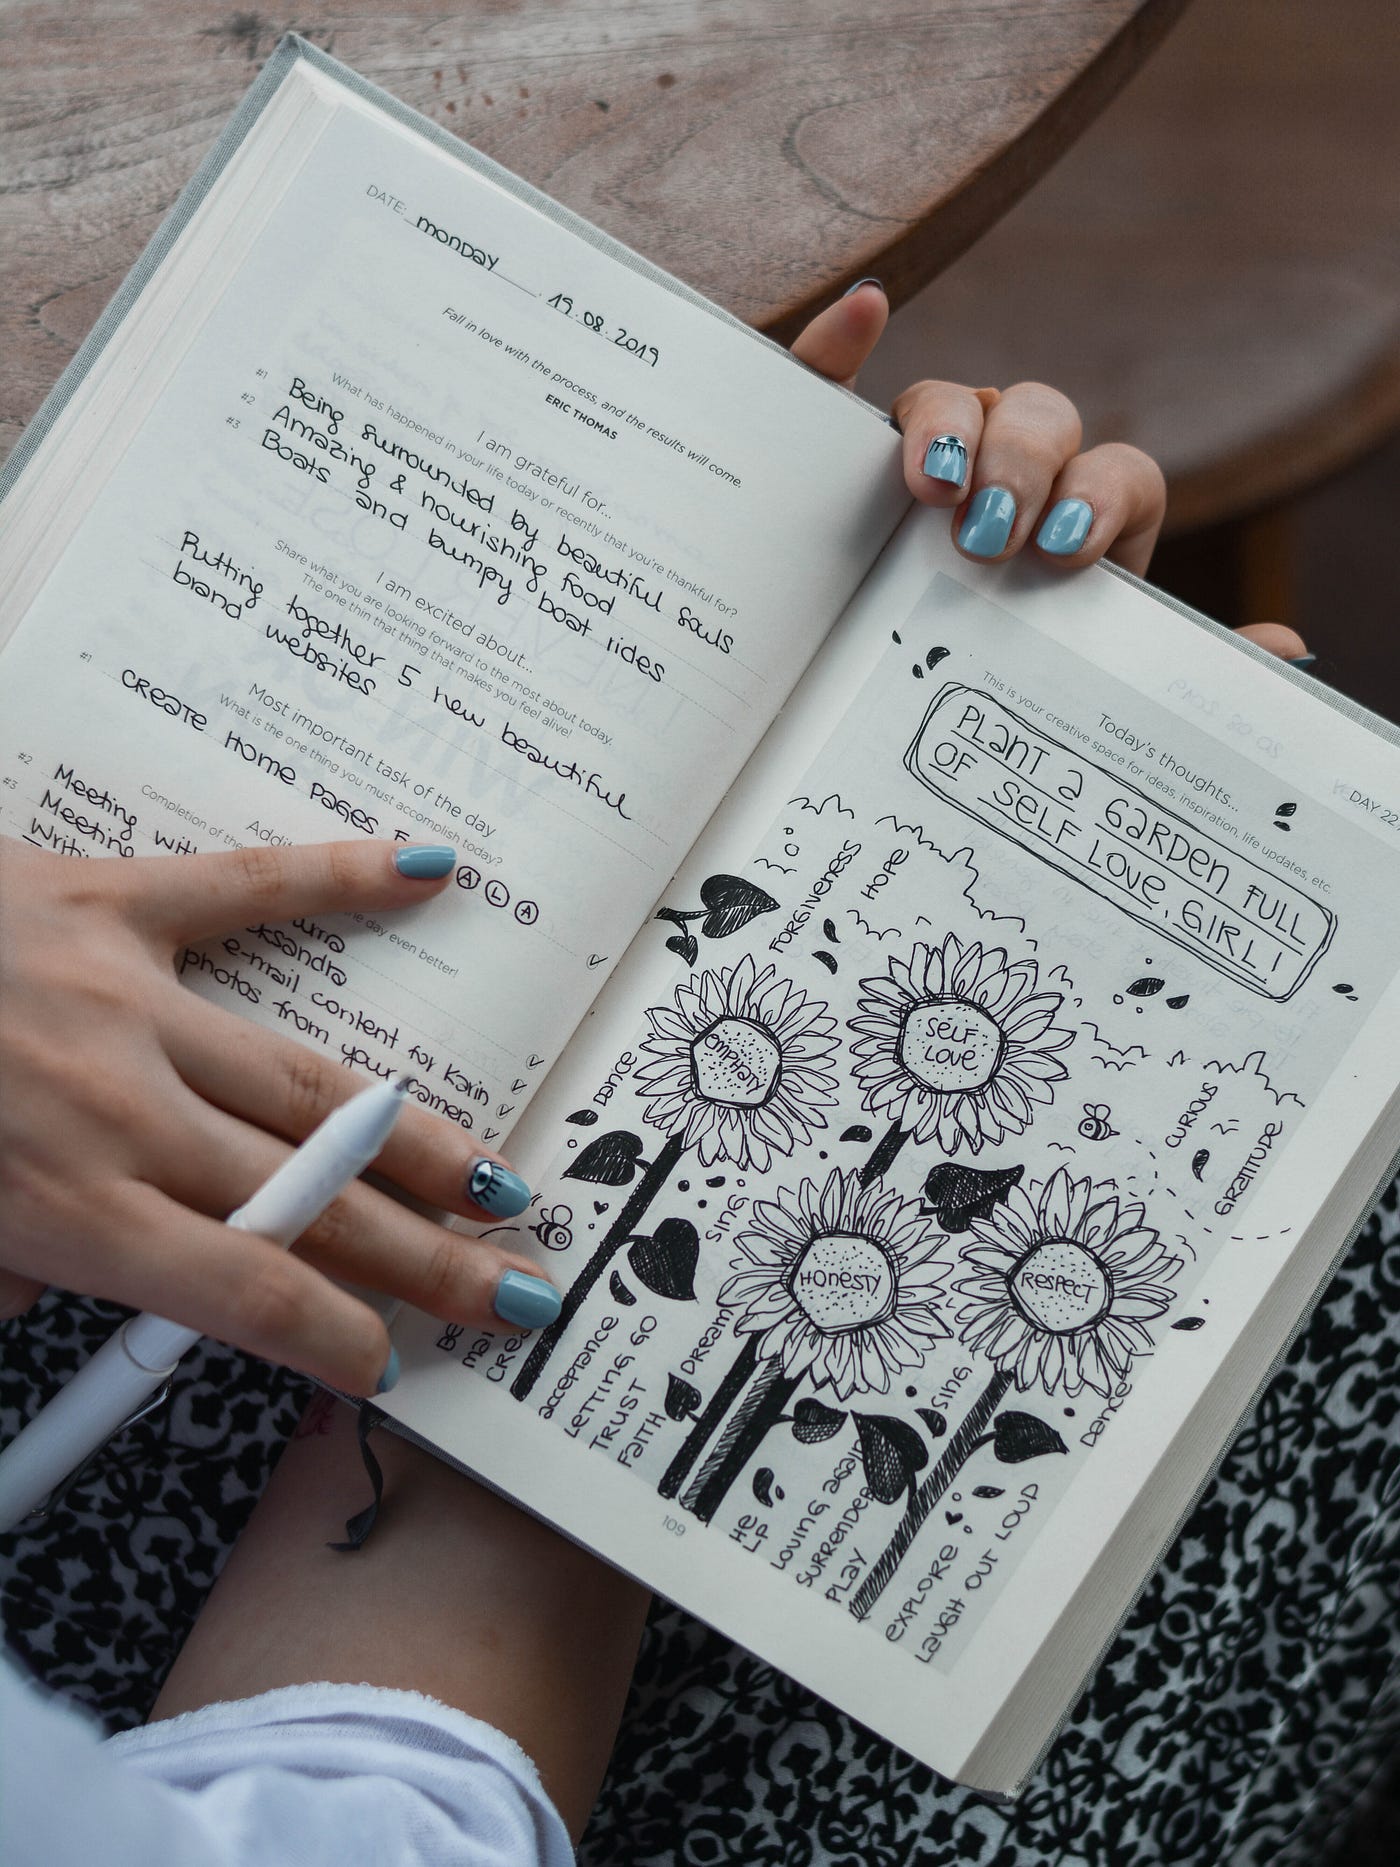 DATE: monday 19.08.2019
Fall in love with the process, and the results will come.
ERIC THOMAS
I am grateful for...
What has happened in your life today or recently that you're thankful for?
#1 Being surrounded by beautiful souls
#2 Amazing & nourishing food
#3 Boats and bumpy boat rides
I am excited about...
Share what you are looking forward to the most about today.
The one thin that thing that makes you feel alive!
Putting together 5 new beautiful
brand websites
Most important task of the day
What is the one thing you must accomplish today?
#1 CREATE HOME PAGES F A L A
Completion of the day even better!
#2 Meeting with
#3 Meeting
e-mail content for Karin
photos from your camera
DAY 22
Today's thoughts...
This is your creative space for ideas, inspiration, life updates, etc.
PLANT a GARDEN FULL
OF SELF LOVE, GIRL!
FORGIVENESS
HOPE
EMPHATY
SELF
LOVE
DANCE
CURIOUS
GRATITUDE
SING
HONESTY
RESPECT
acceptance
LETTING GO
TRUST
FAITH
Dream
SING
Dance
HE
LP
LOVING again
SURRENDER
PLAY
EXPLORE
LAUGH OUT LOUD
109